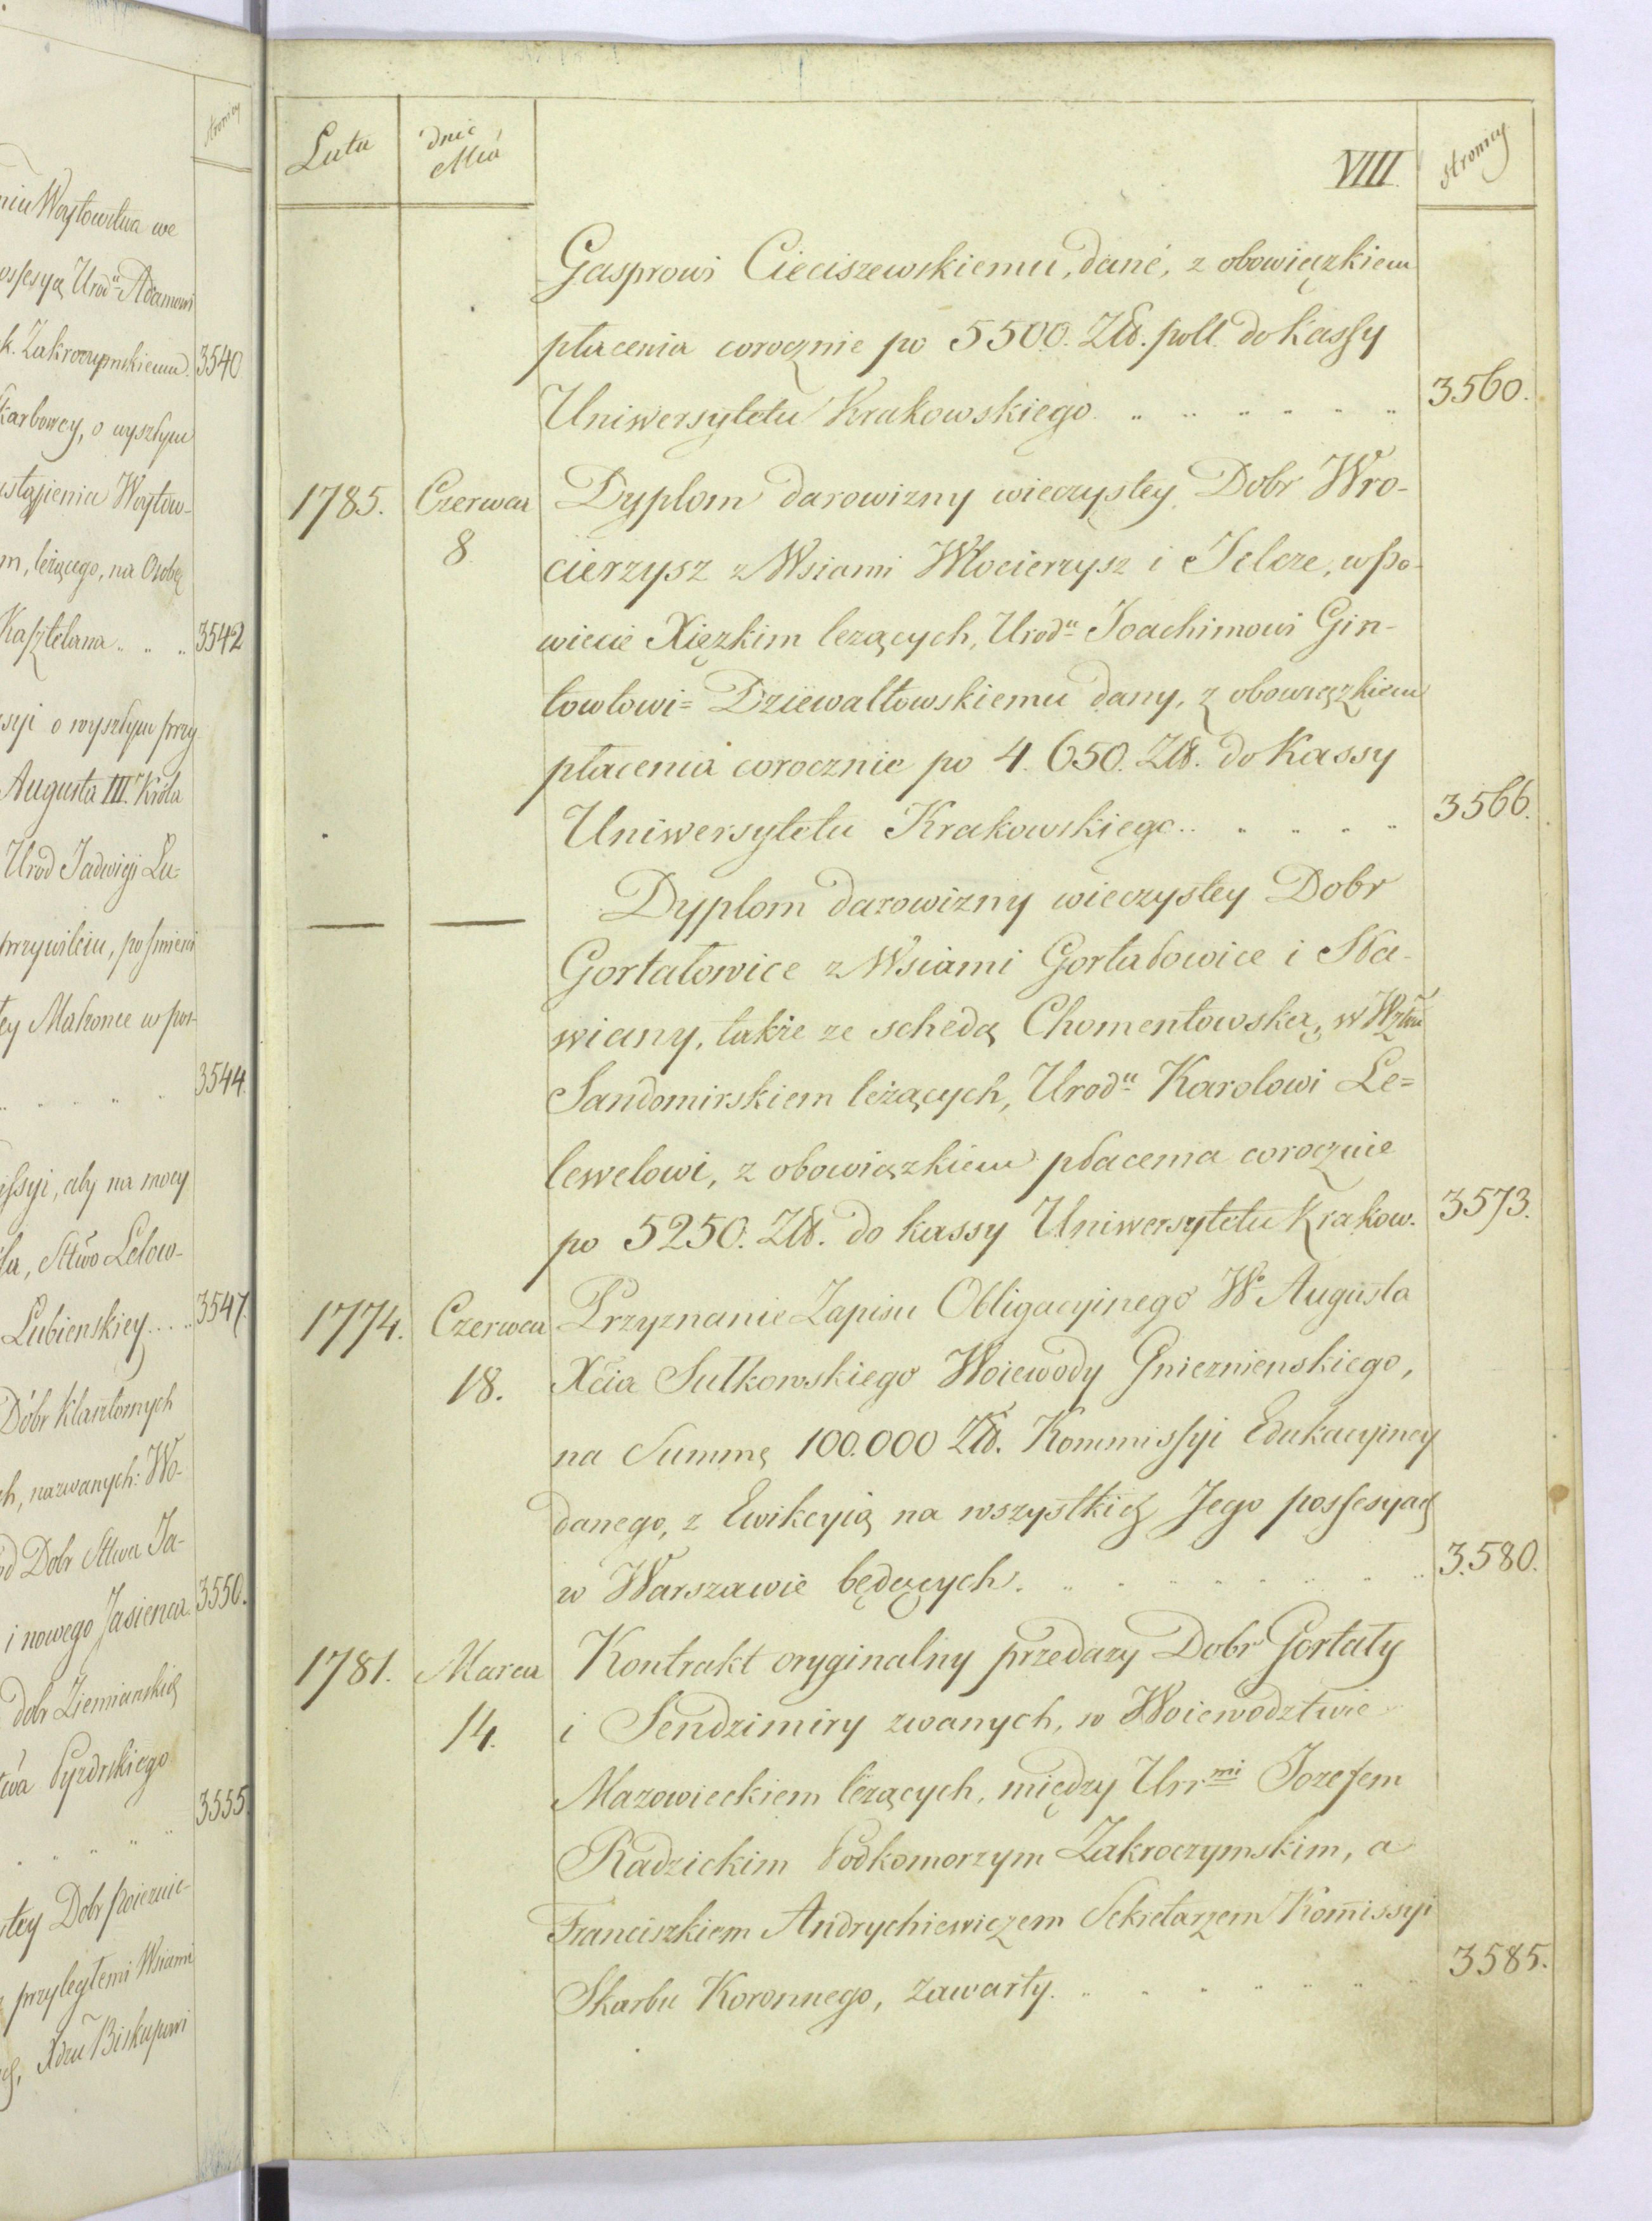 stronicy
niu Woytowstwa we
ossesyą Urodu Adamowi
k. Zakroczymskiemu. 3540
karbowey, o wyszłym
ustąpienia Woytow-
m, leżącego, na Osobę
Kasztelana .. .. .. 3542
ssyi o wyszłym przy
Augusta III. Króla
Urod Jadwigi Łu-
przywileiu, po śmierci
ey Makonce w pos-
3544.
issyi, aby na mocy
la, Sttwo Lelow-
Lubienskiey.... 3547.
Dóbr klasztornych
ch, nazwanych: Wo-
od Dobr Sttwa Ja-
i nowego Jasienca. 3550.
dobr Ziemianskich
twa Pyzdrskiego
3555.
stey Dobr
z przyległemi Wsiami
Xdzu Biskupowi
Lata dnie Mca VIIII. stronicy
Gasprowi Cieciszewskiemu, dané, z obowiązkiem
płacenia corocznie po 5500. Zł. poll. do Kassy
Uniwersytetu Krakowskiego. .. .. .. .. .. .. 3560.
1785. Czerwca Dyplom darowizny wieczystey Dobr Wro-
8. cierzysz z Wsiami Włocierzysz i Jelcze, w Po-
wiecie Xięzkim lezących, Urodu Joachimowi Gin-
towtowi= Dziewałtowskiemu dany, z obowiązkiem
płacenia corocznie po 4.650. Zł. do Kassy
Uniwersytetu Krakowskiego.. .. .. .. .. 3566.
— — Dyplom darowizny wieczystey Dobr
Gortatowice z Wsiami Gortatowice i Sła-
wiany, także ze schedą Chomentowską, w Wztwie
Sandomirskiem leżących, Urodu Karolowi Le=
lewelowi, z obowiązkiem płacenia corocznie
po 5250. Zł. do kassy Uniwersytetu Krakow. 3573.
1774. Czerwca Przyznanie Zapisu Obligacyinego Wo Augusta
18. Xcia Sułkowskiego Woiewody Gnieznienskiego,
na Summę 100.000 Zł. Kommissyi Edukacyiney
danego, z Ewikcyią na wszystkich Jego possesyach
w Warszawie będących. .. .. .. .. .. .. .. 3.580.
1781. Marca Kontrakt oryginalny przedazy Dobr Gortaty
14. i Sendzimiry zwanych, w Woiewodztwie
Mazowieckiem leżących, między Urrmi Jozefem
Radzickim Podkomorzym Zakroczymskim, a
Franciszkiem Andrychiewiczem Sekretarzem Komissyi
Skarbu Koronnego, zawarty. .. .. .. .. .. .. 3585.